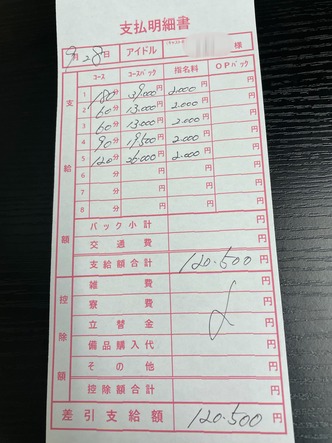 支払明細書
9月28日 アイドル 様
コース コースバック 指名料 OPバック
支給額
1 180分 39,000円 2,000円 円
2 60分 13,000円 2,000円 円
3 60分 13,000円 2,000円 円
4 90分 19,500円 2,000円 円
5 120分 26,000円 2,000円 円
6 分 円 円 円
7 分 円 円 円
8 分 円 円 円
バック小計 円
交通費 円
支給額合計 120.500円
控除額
雑費 円
寮費 円
立替金 円
備品購入代 円
その他 円
控除額合計 円
差引支給額 120.500円